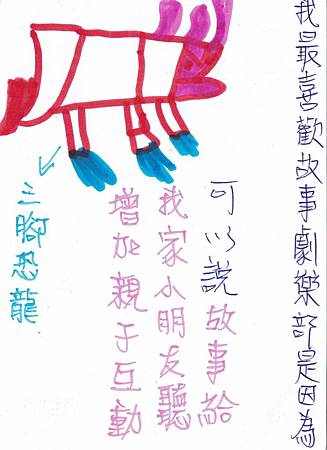 我最喜歡故事劇樂部是因為
可以說故事給
我家小朋友聽
增加親子互動
三腳恐龍